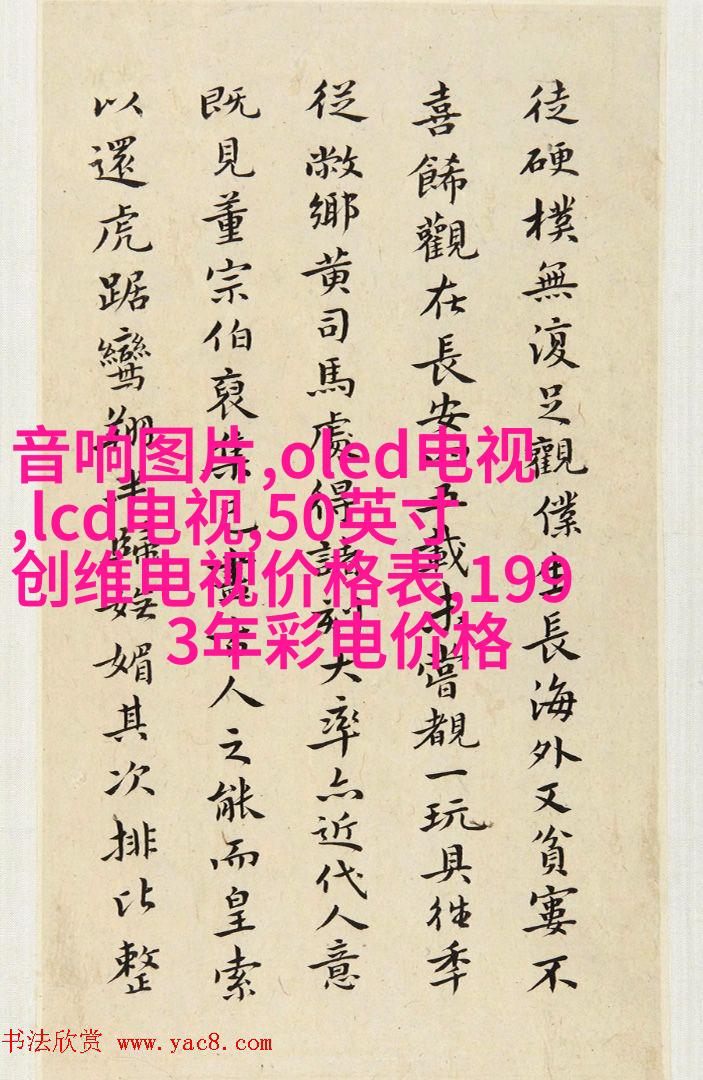 徒硬樸無復足觀僕生長海外又貧寠不
喜餙觀在長安五載未嘗覩一玩具往年
從敝鄉黃司馬處得諸刻大率亦近代人意
既見董宗伯裒集人之能而皇索
以還虎踞鸞翔歸媚其次排比整
音响图片,oled电视
,lcd电视,50英寸
创维电视价格表,199
3年彩电价格
书法欣赏 www.yac8.com